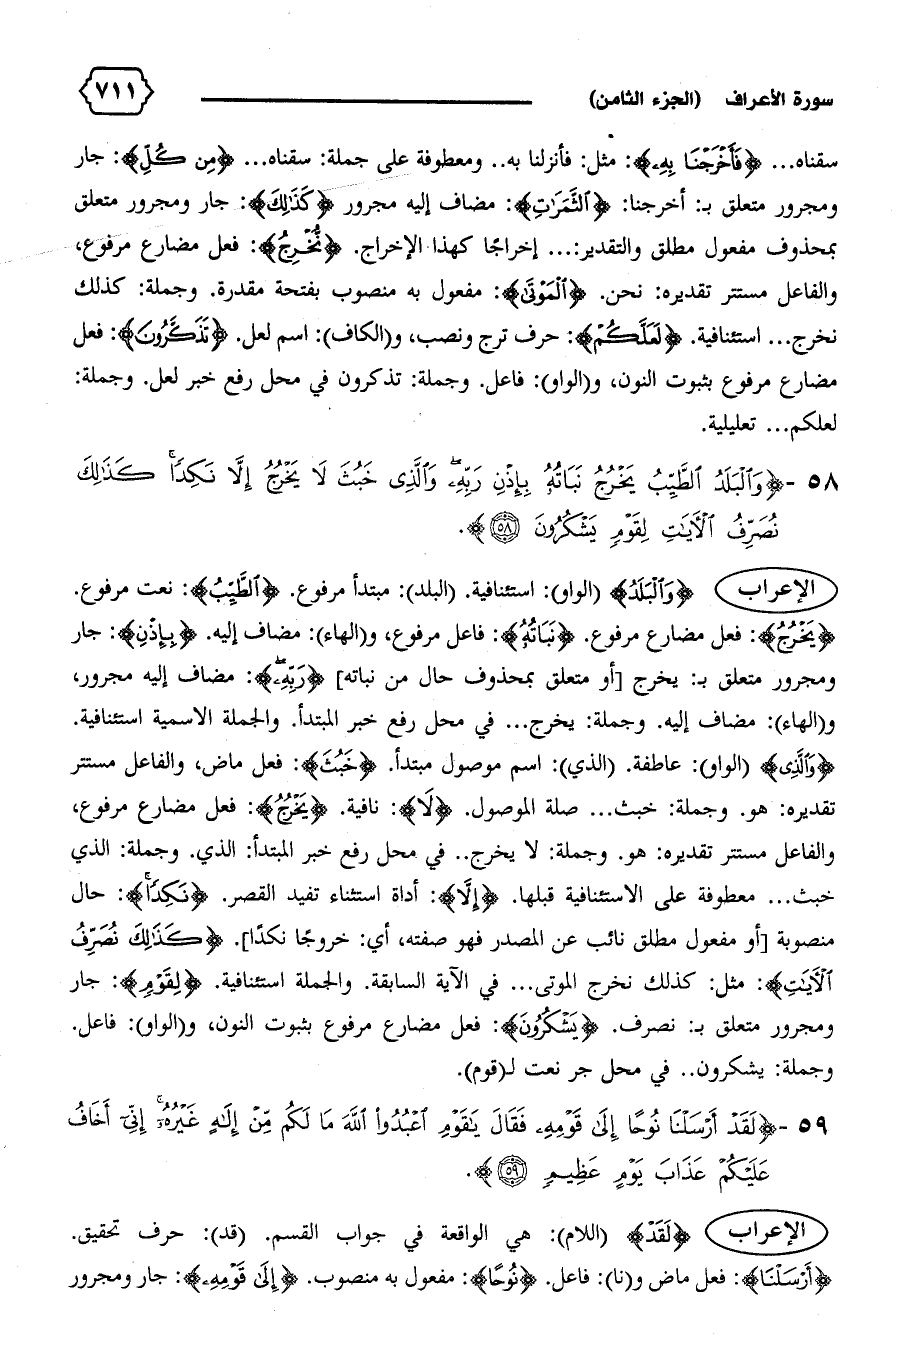 سورة الأعراف (الجزء الثامن) ٧١١
سقناه... ﴿فَأَخْرَجْنَا بِهِۦ﴾: مثل: فأنزلنا به.. ومعطوفة على جملة: سقناه... ﴿مِن كُلِّ﴾: جار
ومجرور متعلق بـ: أخرجنا: ﴿ٱلثَّمَرَٰتِ﴾: مضاف إليه مجرور ﴿كَذَٰلِكَ﴾: جار ومجرور متعلق
بمحذوف مفعول مطلق والتقدير:... إخراجًا كهذا الإخراج. ﴿نُخْرِجُ﴾: فعل مضارع مرفوع،
والفاعل مستتر تقديره: نحن. ﴿ٱلْمَوْتَىٰ﴾: مفعول به منصوب بفتحة مقدرة. وجملة: كذلك
نخرج... استئنافية. ﴿لَعَلَّكُمْ﴾: حرف ترج ونصب، و(الكاف): اسم لعل. ﴿تَذَكَّرُونَ﴾: فعل
مضارع مرفوع بثبوت النون، و(الواو): فاعل. وجملة: تذكرون في محل رفع خبر لعل. وجملة:
لعلكم... تعليلية.
٥٨ -﴿وَٱلْبَلَدُ ٱلطَّيِّبُ يَخْرُجُ نَبَاتُهُۥ بِإِذْنِ رَبِّهِۦۖ وَٱلَّذِى خَبُثَ لَا يَخْرُجُ إِلَّا نَكِدًاۚ كَذَٰلِكَ
نُصَرِّفُ ٱلْأَيَٰتِ لِقَوْمٍ يَشْكُرُونَ ۝٥٨﴾.
الإعراب ﴿وَٱلْبَلَدُ﴾ (الواو): استئنافية. (البلد): مبتدأ مرفوع. ﴿ٱلطَّيِّبُ﴾: نعت مرفوع.
﴿يَخْرُجُ﴾: فعل مضارع مرفوع. ﴿نَبَاتُهُۥ﴾: فاعل مرفوع، و(الهاء): مضاف إليه. ﴿بِإِذْنِ﴾: جار
ومجرور متعلق بـ: يخرج [أو متعلق بمحذوف حال من نباته] ﴿رَبِّهِۦۖ﴾: مضاف إليه مجرور،
و(الهاء): مضاف إليه. وجملة: يخرج... في محل رفع خبر المبتدأ. والجملة الاسمية استئنافية.
﴿وَٱلَّذِى﴾ (الواو): عاطفة. (الذي): اسم موصول مبتدأ. ﴿خَبُثَ﴾: فعل ماض، والفاعل مستتر
تقديره: هو. وجملة: خبث... صلة الموصول. ﴿لَا﴾: نافية. ﴿يَخْرُجُ﴾: فعل مضارع مرفوع،
والفاعل مستتر تقديره: هو. وجملة: لا يخرج.. في محل رفع خبر المبتدأ: الذي. وجملة: الذي
خبث... معطوفة على الاستئنافية قبلها. ﴿إِلَّا﴾: أداة استثناء تفيد القصر. ﴿نَكِدًاۚ﴾: حال
منصوبة [أو مفعول مطلق نائب عن المصدر فهو صفته، أي: خروجًا نكدًا]. ﴿كَذَٰلِكَ نُصَرِّفُ
ٱلْأَيَٰتِ﴾: مثل: كذلك نخرج الموتى... في الآية السابقة. والجملة استئنافية. ﴿لِقَوْمٍ﴾: جار
ومجرور متعلق بـ: نصرف. ﴿يَشْكُرُونَ﴾: فعل مضارع مرفوع بثبوت النون، و(الواو): فاعل.
وجملة: يشكرون.. في محل جر نعت لـ(قوم).
٥٩ -﴿لَقَدْ أَرْسَلْنَا نُوحًا إِلَىٰ قَوْمِهِۦ فَقَالَ يَٰقَوْمِ ٱعْبُدُوا۟ ٱللَّهَ مَا لَكُم مِّنْ إِلَٰهٍ غَيْرُهُۥٓ إِنِّىٓ أَخَافُ
عَلَيْكُمْ عَذَابَ يَوْمٍ عَظِيمٍ ۝٥٩﴾.
الإعراب ﴿لَقَدْ﴾ (اللام): هي الواقعة في جواب القسم. (قد): حرف تحقيق.
﴿أَرْسَلْنَا﴾: فعل ماض و(نا): فاعل. ﴿نُوحًا﴾: مفعول به منصوب. ﴿إِلَىٰ قَوْمِهِۦ﴾: جار ومجرور